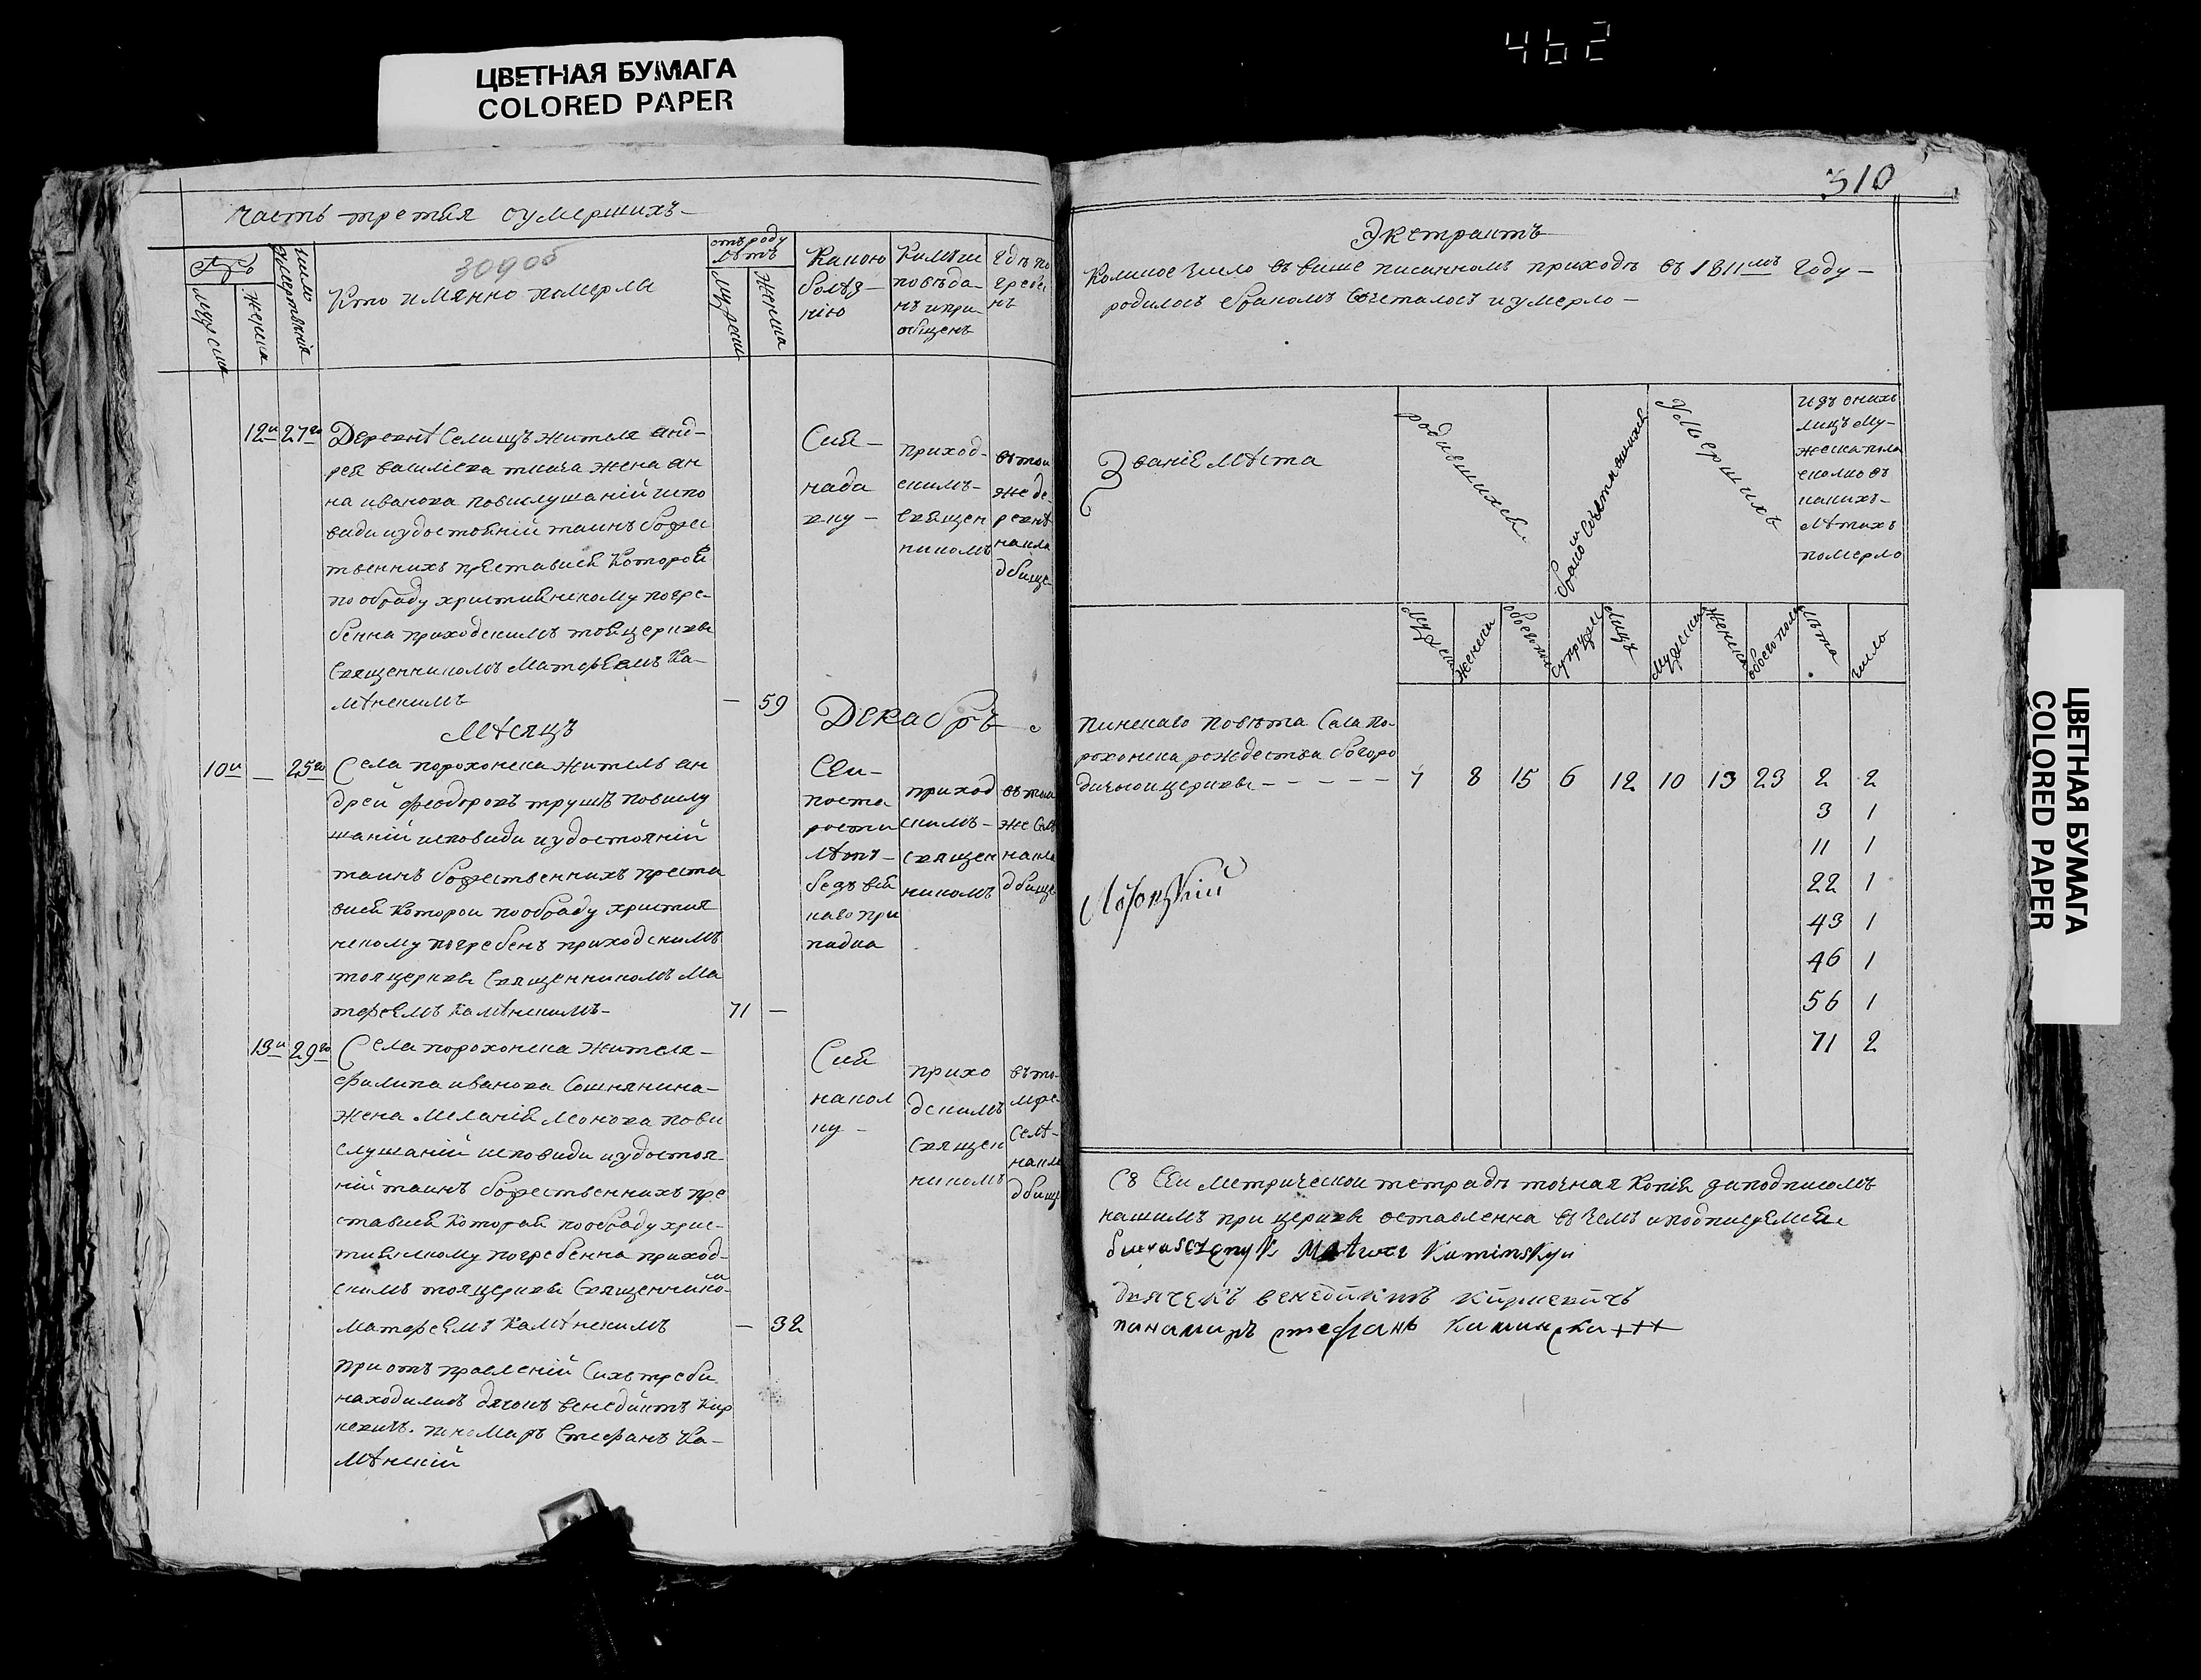 ЦВЕТНАЯ БУМАГА
COLORED PAPER
462
часть третья оумершихъ
309об
число умертвиѣ
мужска
женска
Кто имянно померли
отъ роду
лѣтъ
мужеска
женска
Какою
болѣз-
нію
Кимъ ис
повѣда-
нъ и при-
общенъ
Гдѣ по
гребе
нъ
12и 27го
Деревнѣ Селищъ жителя анд-
рея василіева ткача жена ан
на иванова повислушаній испо
види иудостоѣній таинъ божес
твеннихъ преставися которой
по обряду християнскому погре-
бенна приходскимъ тоя церкви
священникомъ Матфеемъ Ка-
мѣнскимъ
— 59
Сия-
нада
вну-
приход-
скимъ-
священ
никомъ
въ той
же де-
ревнѣ
на кла
дбище
Мѣсяцъ Декабръ
10и — 25го
Села порохонска житель ан
дрей феодоровъ трушъ повислу
шаній исповиди иудостояній
таинъ божественнихъ преста
вися которои по обряду християн
нскому погребенъ приходскимъ
тоя церкви священникомъ Ма
тфеемъ Камѣнскимъ-
71 —
Сеи-
поста
рости
лѣтъ-
безъ вся
каго при
падка
приход
скимъ-
священ
никомъ
въ том
же селѣ
на кла
дбище
13и 29го
Села порохонска жителя-
филипа иванова Сошнянина-
жена Меланія Леонова пови
слушаній исповиди иудостоя-
ній таинъ божественнихъ пре
ставися которая по обряду хрис-
тиянскому погребенна приход-
скимъ тоя церкви священнико-
Матфеемъ Камѣнскимъ
— 32
Сия
накол
ку-
прихо
дскимъ
священ
никомъ
въ то-
мже
селѣ-
на кла
дбищ
при отъправленій сихъ треби
находились дячокъ венедиктъ Кир
кевичъ. пномаръ Стефанъ Ка-
мѣнскій
310
Экстрактъ
Коликое число въ више писанномъ приходѣ въ 1811мъ году-
родилось бракомъ сочеталось и умерло-
Званіе мѣста
родившихся
бракомъ сочетавшихся
Умершихъ
изъ оныхъ
лицъ му-
жеска пола
сколко въ
какихъ-
лѣтахъ
померло
мужеска
женска
обоегопола
супружи
лицъ
мужеска
женска
обоегопола
лѣта
число
пинскаго повѣта Села По-
рохонска рождества богоро
дичной церкви - - - - -
7 8 15 6 12 10 13 23 2 2
3 1
11 1
22 1
43 1
46 1
56 1
71 2
Съ сеи метрическои тетради точная копія заподписомъ
нашимъ при церкви оставленна въ чемъ и подписуемся
Matwei Kaminskyi
дячекъ венедиктъ
панамаръ стефанъ Каминска +++
ЦВЕТНАЯ БУМАГА
COLORED PAPER